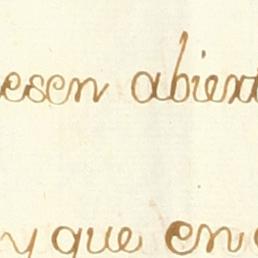 esen abiert
y que en